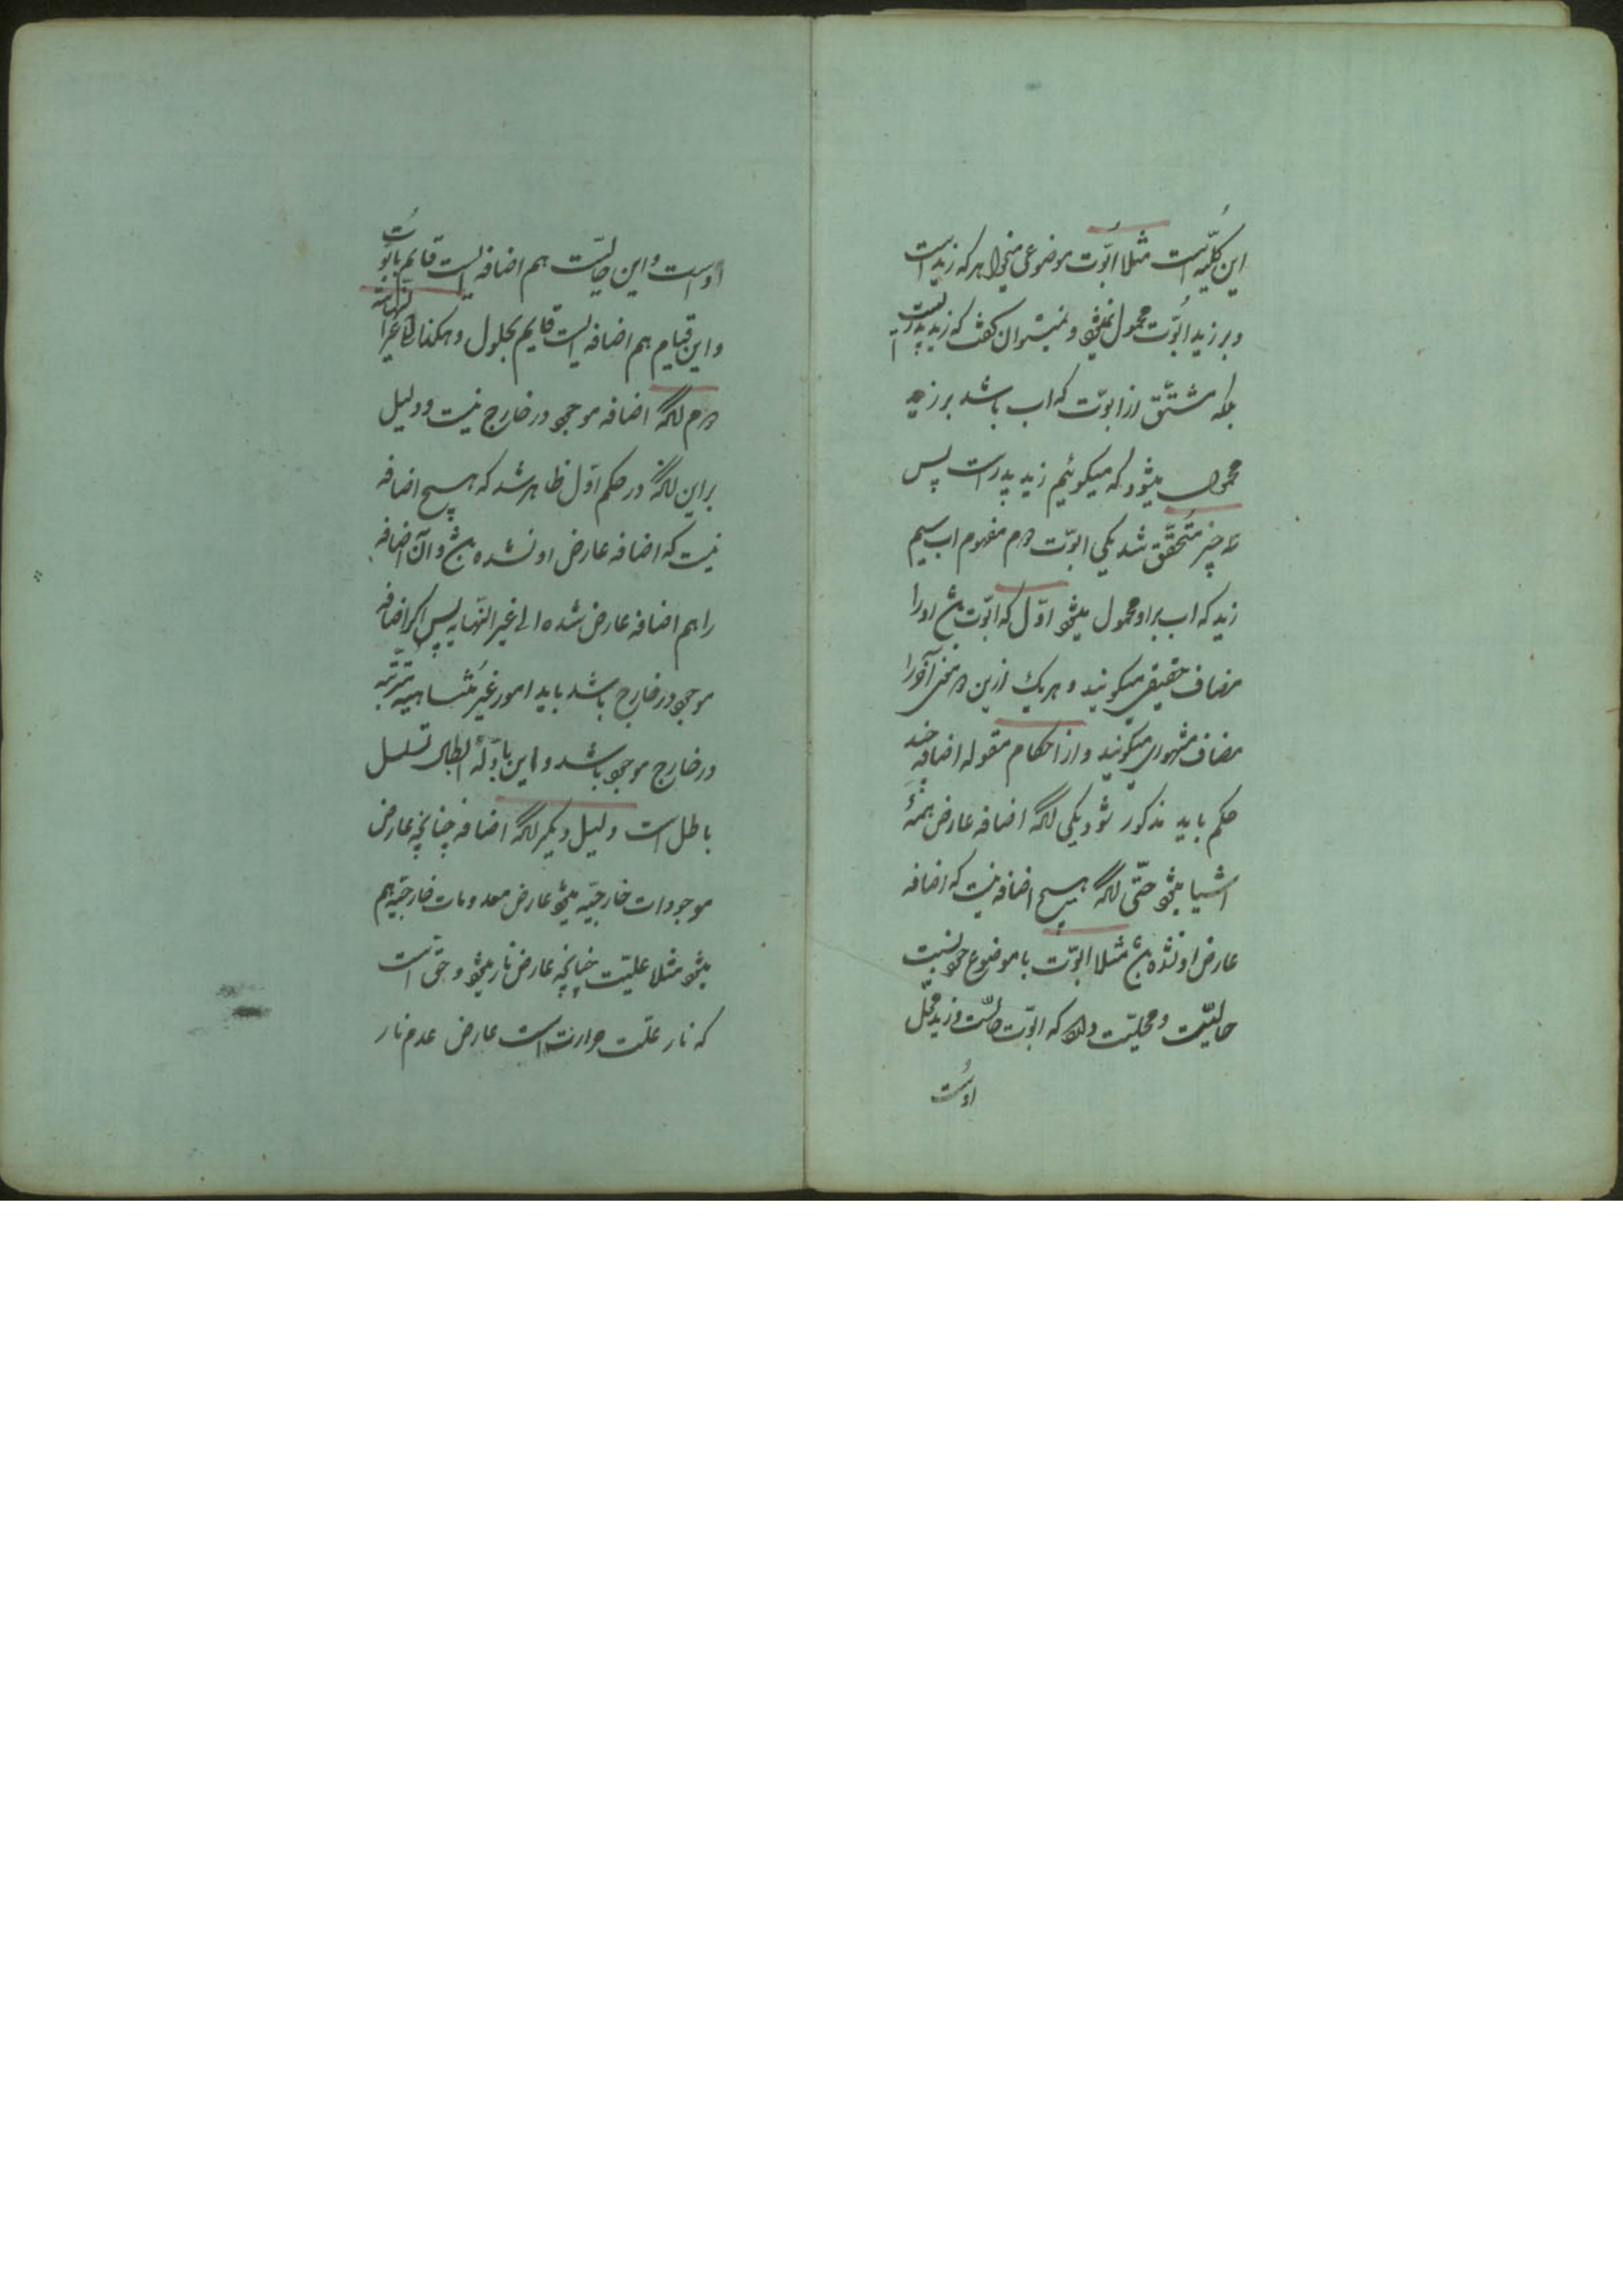 این کلّیه است مثلا ابُوّت موضوعی میخواهد که زید است
و بر زید ابُوّت محمول نمیشود و نمیتوان گفت که زید پدریست
بلکه مشتق از ابوّت که اب باشد بر زید
محمول میشود که میگوئیم زید پدر است پس
سه چیز مُتحقّق شد یکی ابوّت دوم مفهوم اب سیم
زید که اب بر او محمول میشود اوّل که ابوّت باشد او را
مضاف حقیقی میگویند و هر یک ازین دو معنی آخر را
مضاف مشهوری میگویند و از احکام مقوله اضافه چند
حکم باید مذکور شود یکی آنکه اضافه عارض همهٔ
اشیا میشود حتّی آنکه هیچ اضافه نیست که اضافه
عارض او نشده باشد مثلا ابوّت با موضوع خود نسبت
حالیّت و محلیّت دارد که ابوّت حالست و زید محلّ
اوست
اوست و این حالیّت هم اضافه ایست قایم بابوّت
و این قیام هم اضافه ایست قایم بحلول و هکذا الی غیر النّهایة
دوم آنکه اضافه موجود در خارج نیست و دلیل
براین آنکه در حکم اوّل ظاهر شد که هیچ اضافه
نیست که اضافه عارض او نشده باشد و آن اضافه
را هم اضافه عارض شده الی غیر النّهایه پس اکر اضافه
موجود در خارج باشد باید امور غیر متناهیه مترتّبه
در خارج موجود باشد و این بادلّهٔ ابطال تسلسل
باطل است دلیل دیگر آنکه اضافه چنانچه عارض
موجودات خارجیّه میشود عارض معدومات خارجیّه هم
میشود مثلا علیّت چنانچه عارض نار میشود و حق است
که نار علّت حرارت است عارض عدم نار